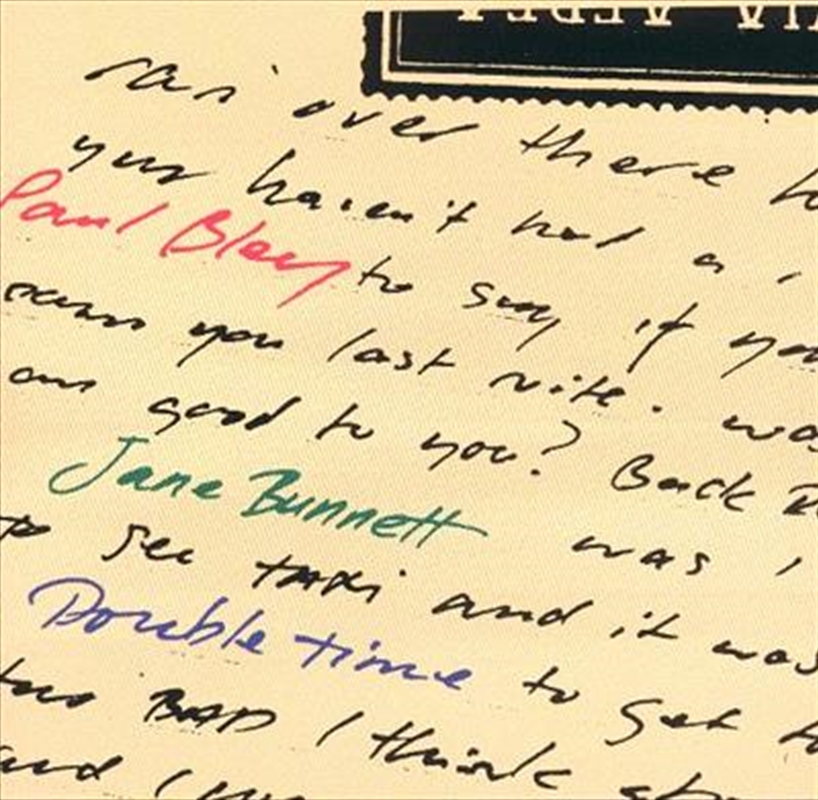 VIA AEREA
ran over there
you haven't had a
Paul Bley to say if you
you last nite. was
am good to you? Back
Jane Bunnett was
to see taxi and it was
Double time to get
too BAD I think
and I